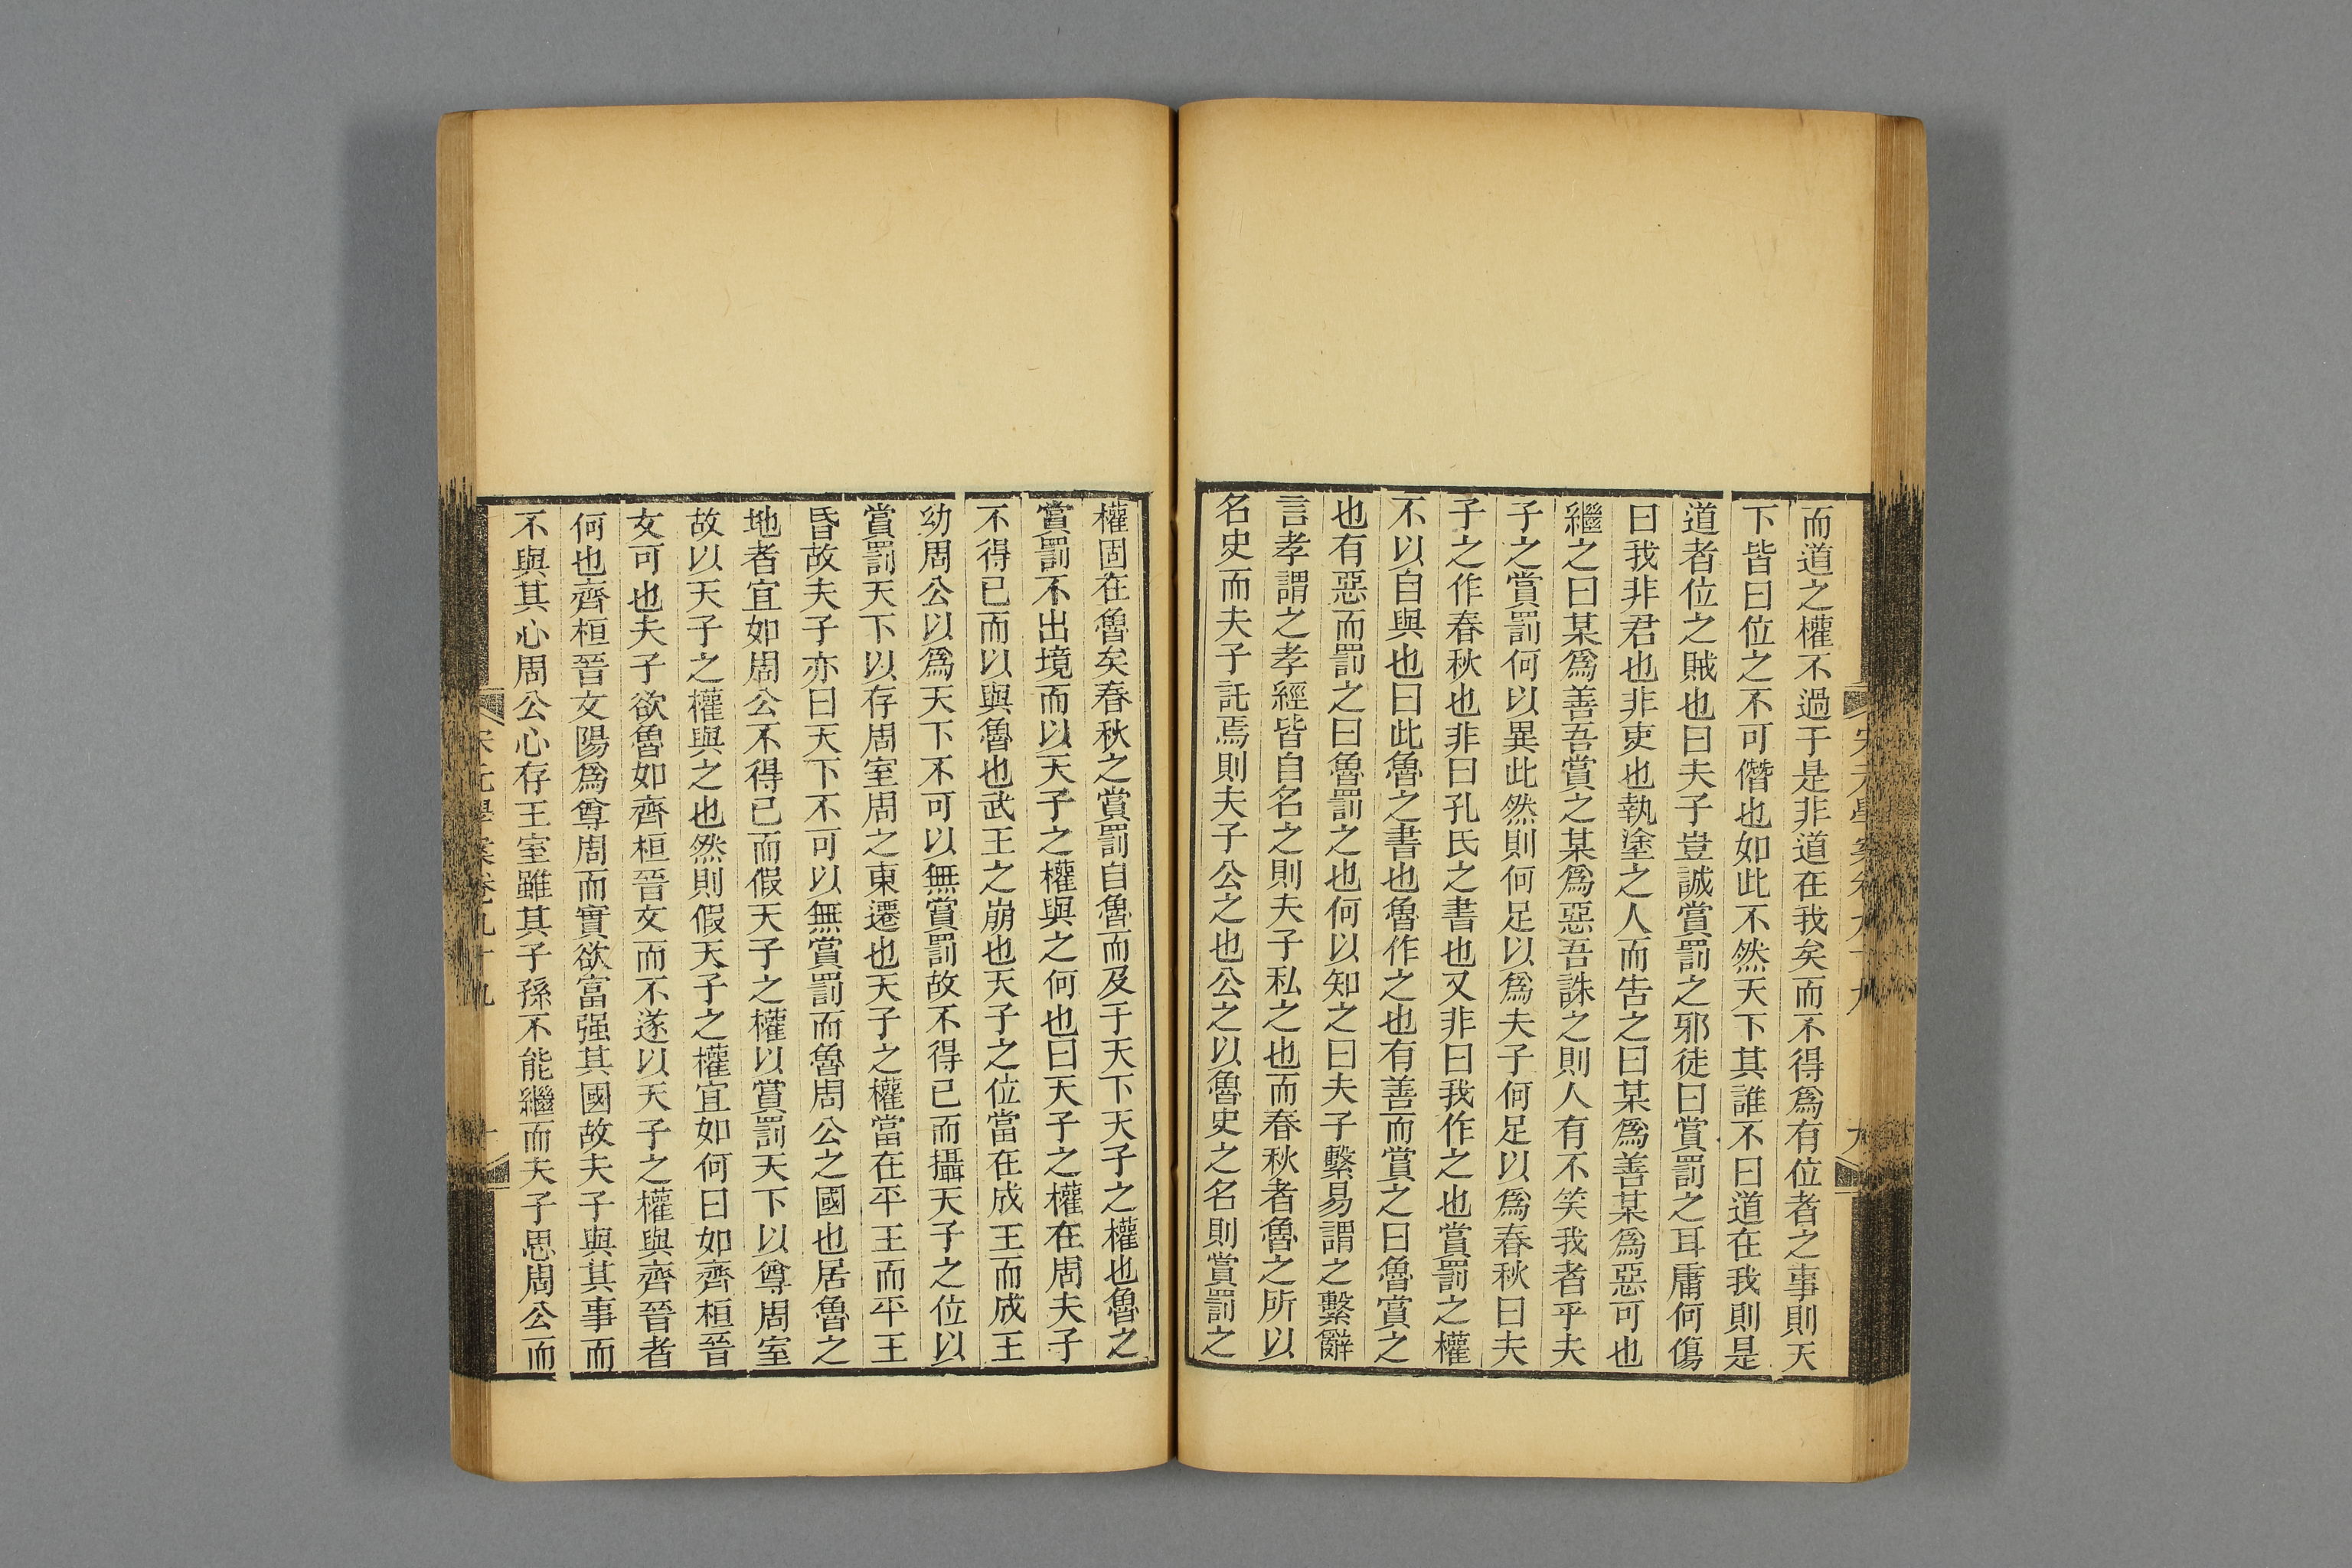 而道之權不過于是非道在我矣而不得爲有位者之事則天
下皆曰位之不可僭也如此不然天下其誰不曰道在我則是
道者位之賊也曰夫子豈誠賞罰之邪徒曰賞罰之耳庸何傷
曰我非君也非吏也執塗之人而告之曰某爲善某爲惡可也
繼之曰某爲善吾賞之某爲惡吾誅之則人有不笑我者乎夫
子之賞罰何以異此然則何足以爲夫子何足以爲春秋曰夫
子之作春秋也非曰孔氏之書也又非曰我作之也賞罰之權
不以自與也曰此魯之書也魯作之也有善而賞之曰魯賞之
也有惡而罰之曰魯罰之也何以知之曰夫子繫易謂之繫辭
言孝謂之孝經皆自名之則夫子私之也而春秋者魯之所以
名史而夫子託焉則夫子公之也公之以魯史之名則賞罰之
權固在魯矣春秋之賞罰自魯而及于天下天子之權也魯之
賞罰不出境而以天子之權與之何也曰天子之權在周夫子
不得已而以與魯也武王之崩也天子之位當在成王而成王
幼周公以爲天下不可以無賞罰故不得已而攝天子之位以
賞罰天下以存周室周之東遷也天子之權當在平王而平王
昏故夫子亦曰天下不可以無賞罰而魯周公之國也居魯之
地者宜如周公不得已而假天子之權以賞罰天下以尊周室
故以天子之權與之也然則假天子之權宜如何曰如齊桓晉
文可也夫子欲魯如齊桓晉文而不遂以天子之權與齊晉者
何也齊桓晉文陽爲尊周而實欲富强其國故夫子與其事而
不與其心周公心存王室雖其子孫不能繼而夫子思周公而
宋元學案卷九十九
十